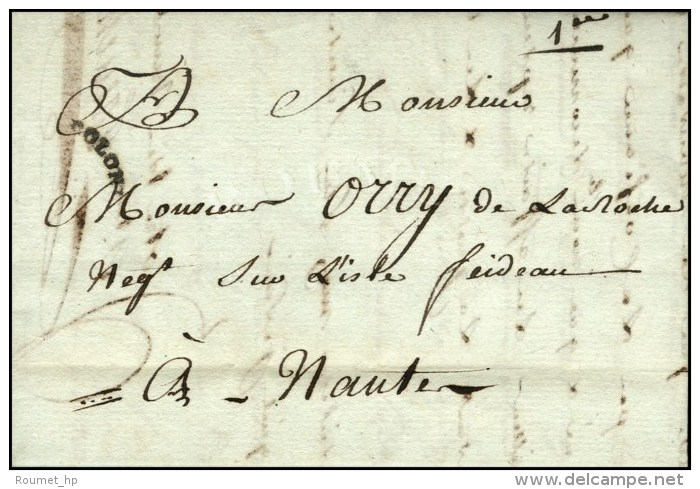 1re
Monsieur
COLON
Monsieur Orry de LaRoche
Negt Sur L'isle feideau
à - Nantes
Roumet_hp
delcampe.net